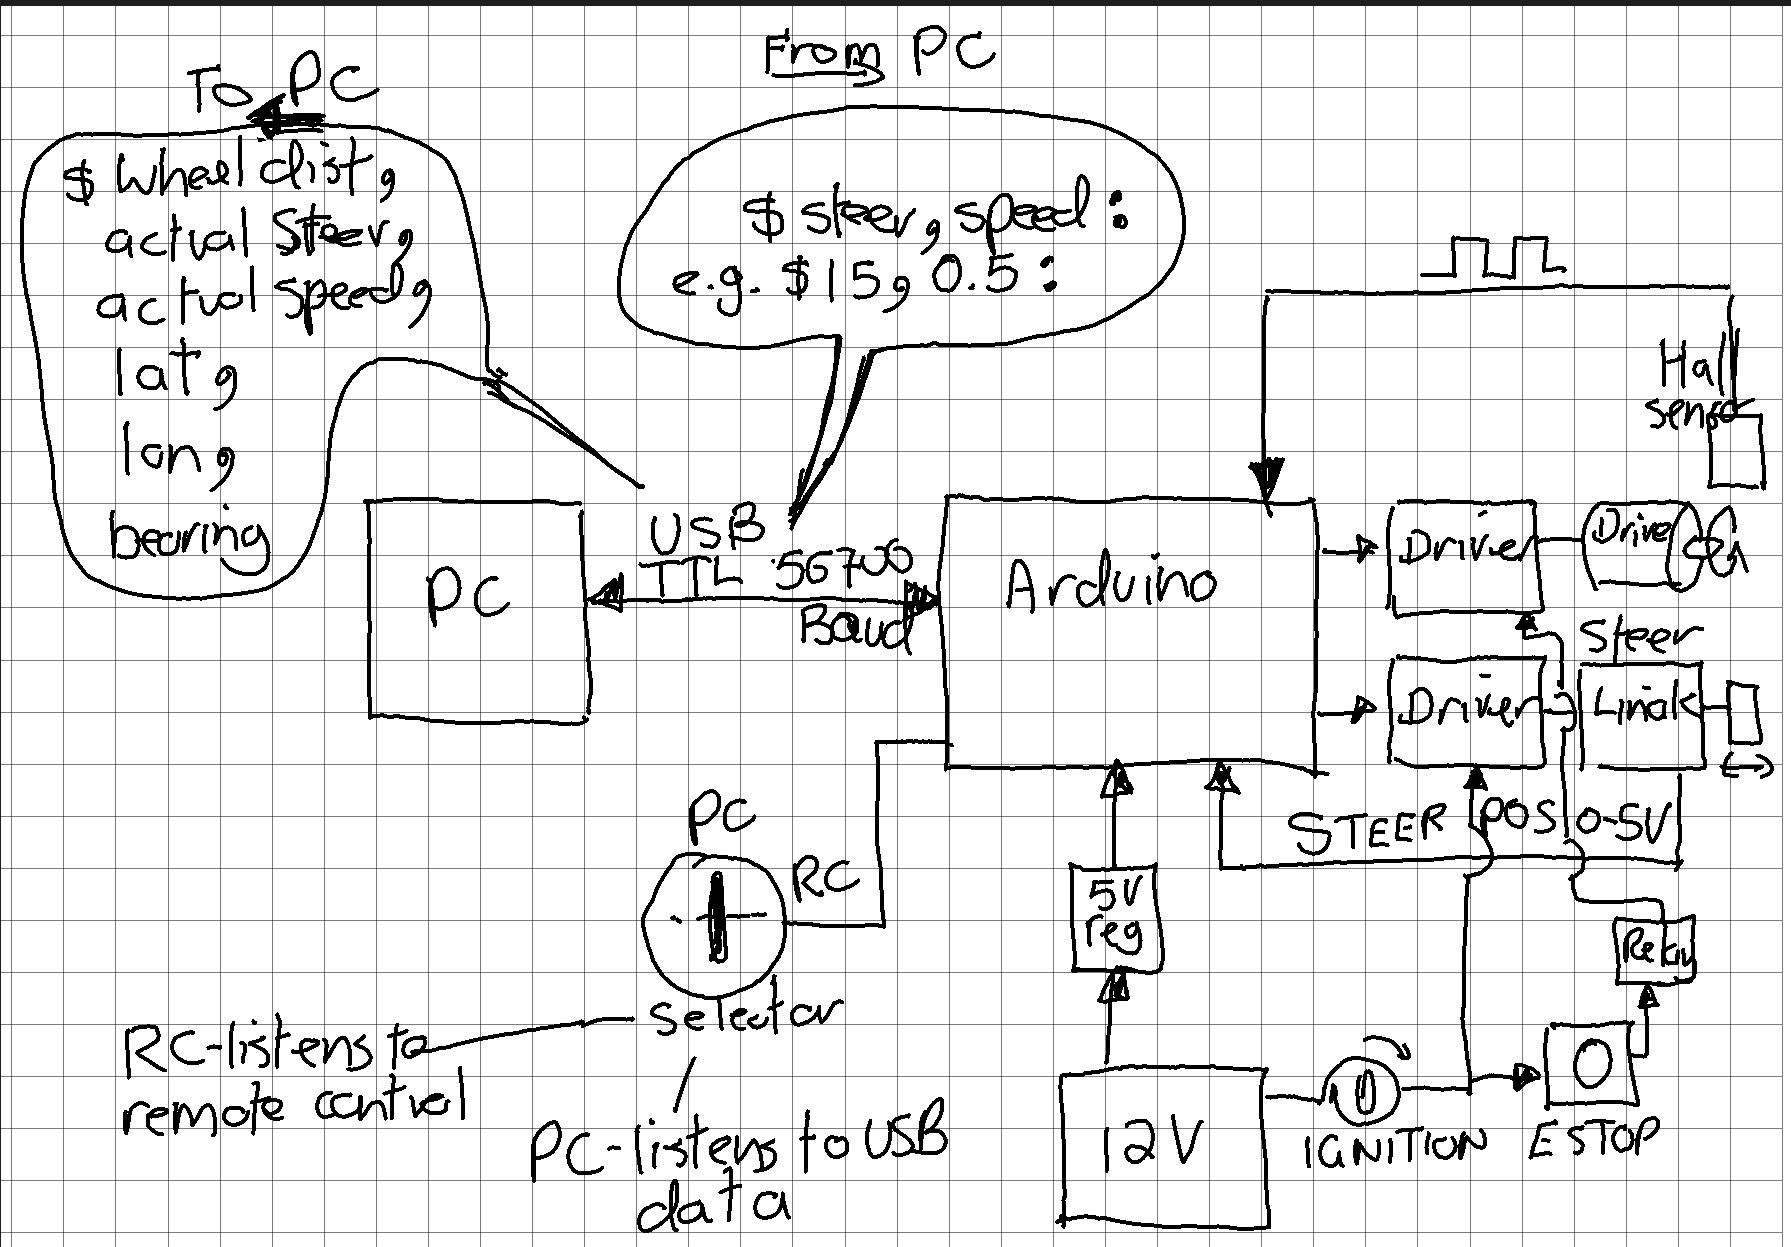 From PC
To PC
$ wheel dist,
actual Steer,
actual speed,
lat,
lon,
bearing
$ steer, speed:
e.g. $15, 0.5:
Hall
sensor
USB
TTL 56700
Baud
PC
Arduino
Driver
Drive
Steer
Driver
Linak
STEER POS 0-5V
PC
RC
Selector
5V
reg
Relay
RC-listens to
remote control
PC-listens to USB
data
12V
IGNITION
ESTOP